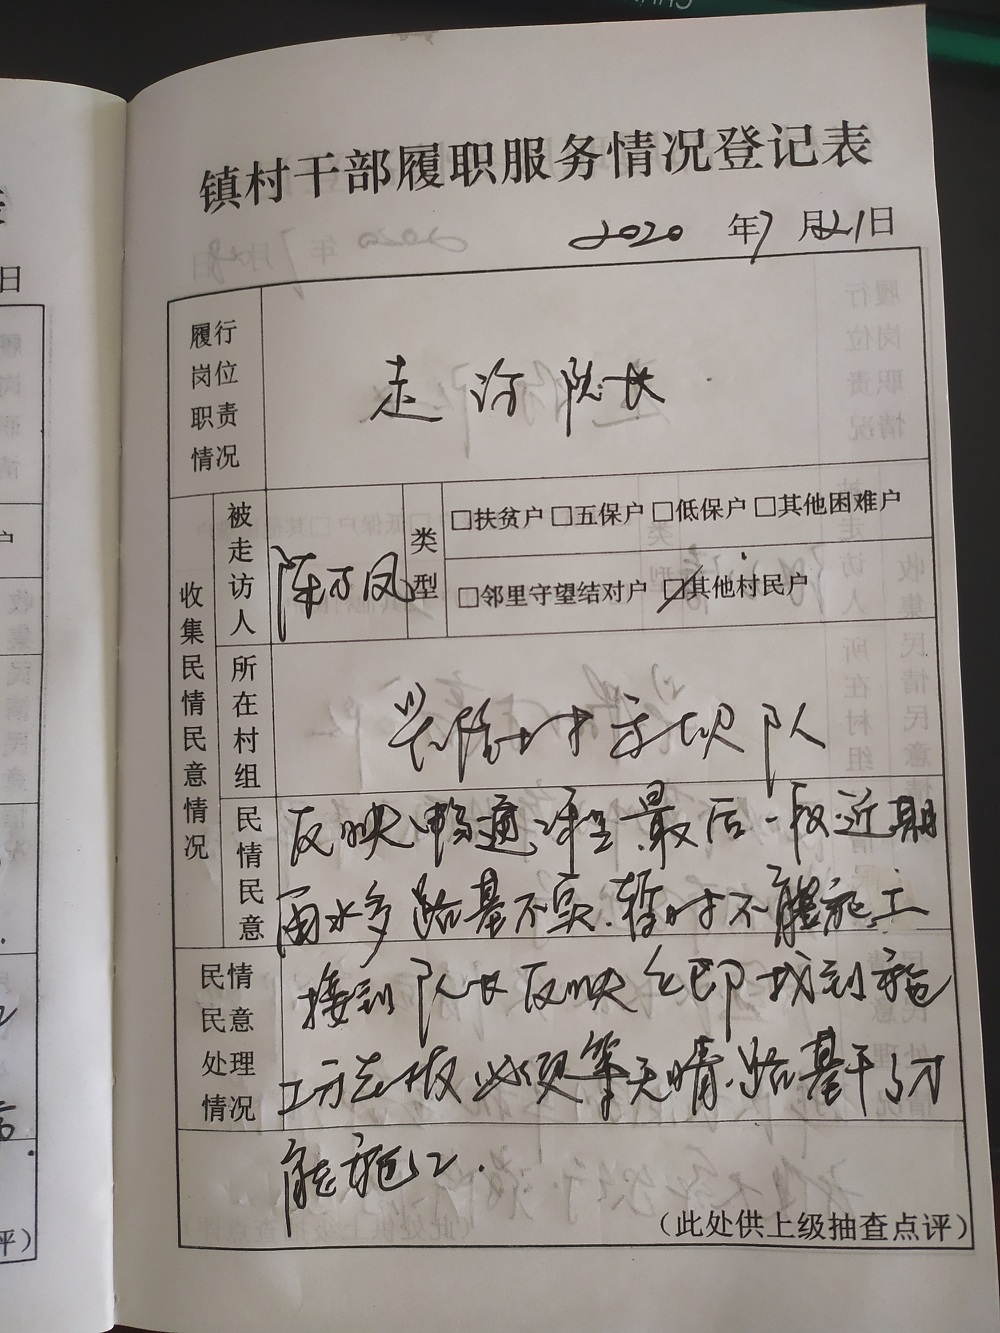 镇村干部履职服务情况登记表
2020 年7 月21日
履行岗位职责情况
走访院长
收集民情民意情况
被走访人
陈万凤
类型
□扶贫户 □五保户 □低保户 □其他困难户
□邻里守望结对户 ☑其他村民户
所在村组
村 坝队
民情民意
反映畅通 最后一段近期
雨水多路基不实.暂时不能施工
民情民意处理情况
接到队长反映立即找到施
工方老板必须等天晴.路基干了才
能施工.
(此处供上级抽查点评)
日
户
评)